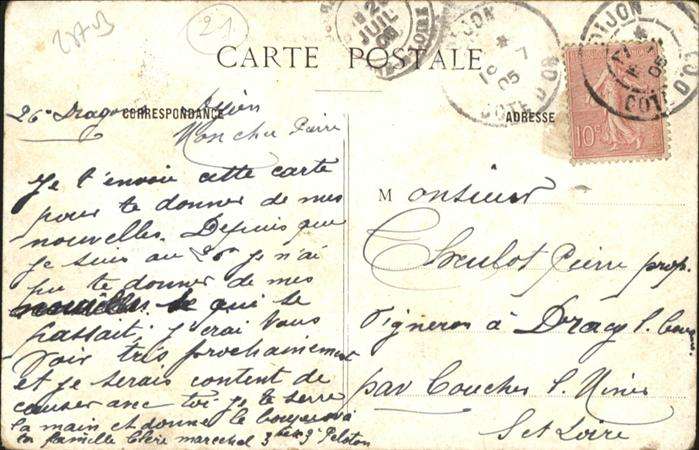 21
CARTE POSTALE
JUIL
DIJON
COTE D'OR
DIJON
COTE D'OR
10
CORRESPONDANCE
ADRESSE
26e Dragons Dijon
Mon cher Pierre
Je t'envoie cette carte
pour te donner de mes
nouvelles. Depuis que
je suis au 26 je n'ai
pu te donner de mes
nouvelles de qui se
passait. J'irai vous
voir très prochainement
et je serais content de
causer avec toi. Je te serre
la main et donne le bonjour à
ta famille Chère marechel 3me Peloton
Monsieur
Pierre prop.
Vigneron à Dracy l.
par Couches l. Mines
S et Loire